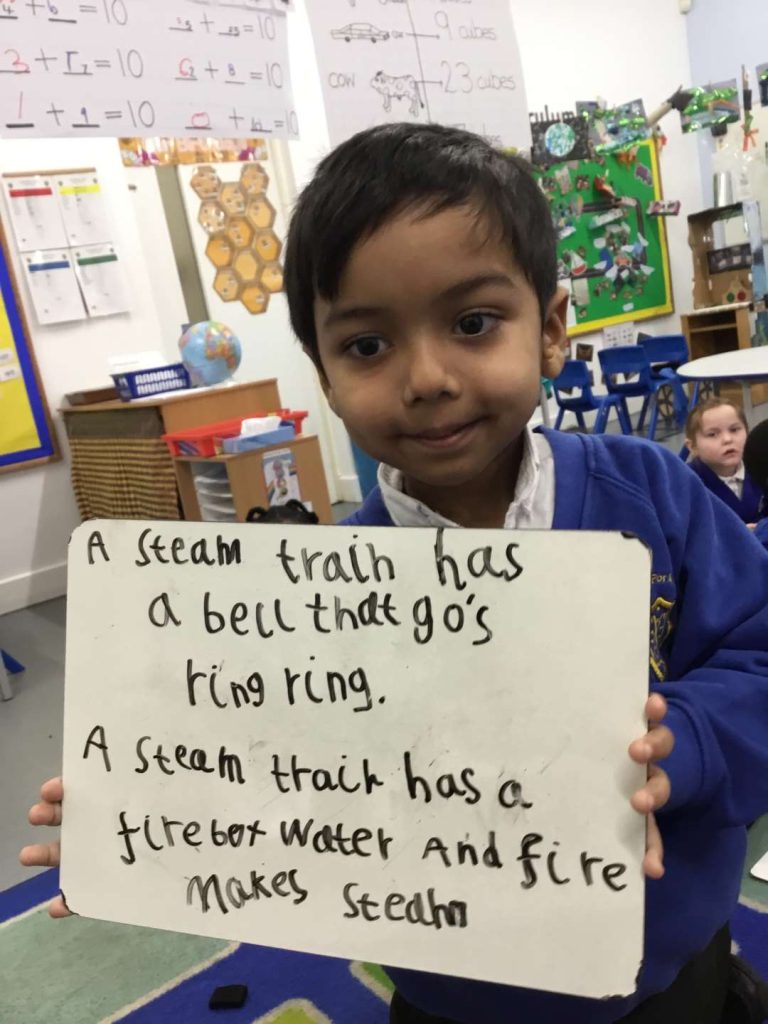 + 6 = 10
3 + = 10
1 + 9 = 10
+ = 10
+ 8 = 10
+ = 10
9 cubes
cow 23 cubes
cubes
A steam train has
a bell that go's
ring ring.
A steam train has a
firebox water And fire
Makes steam